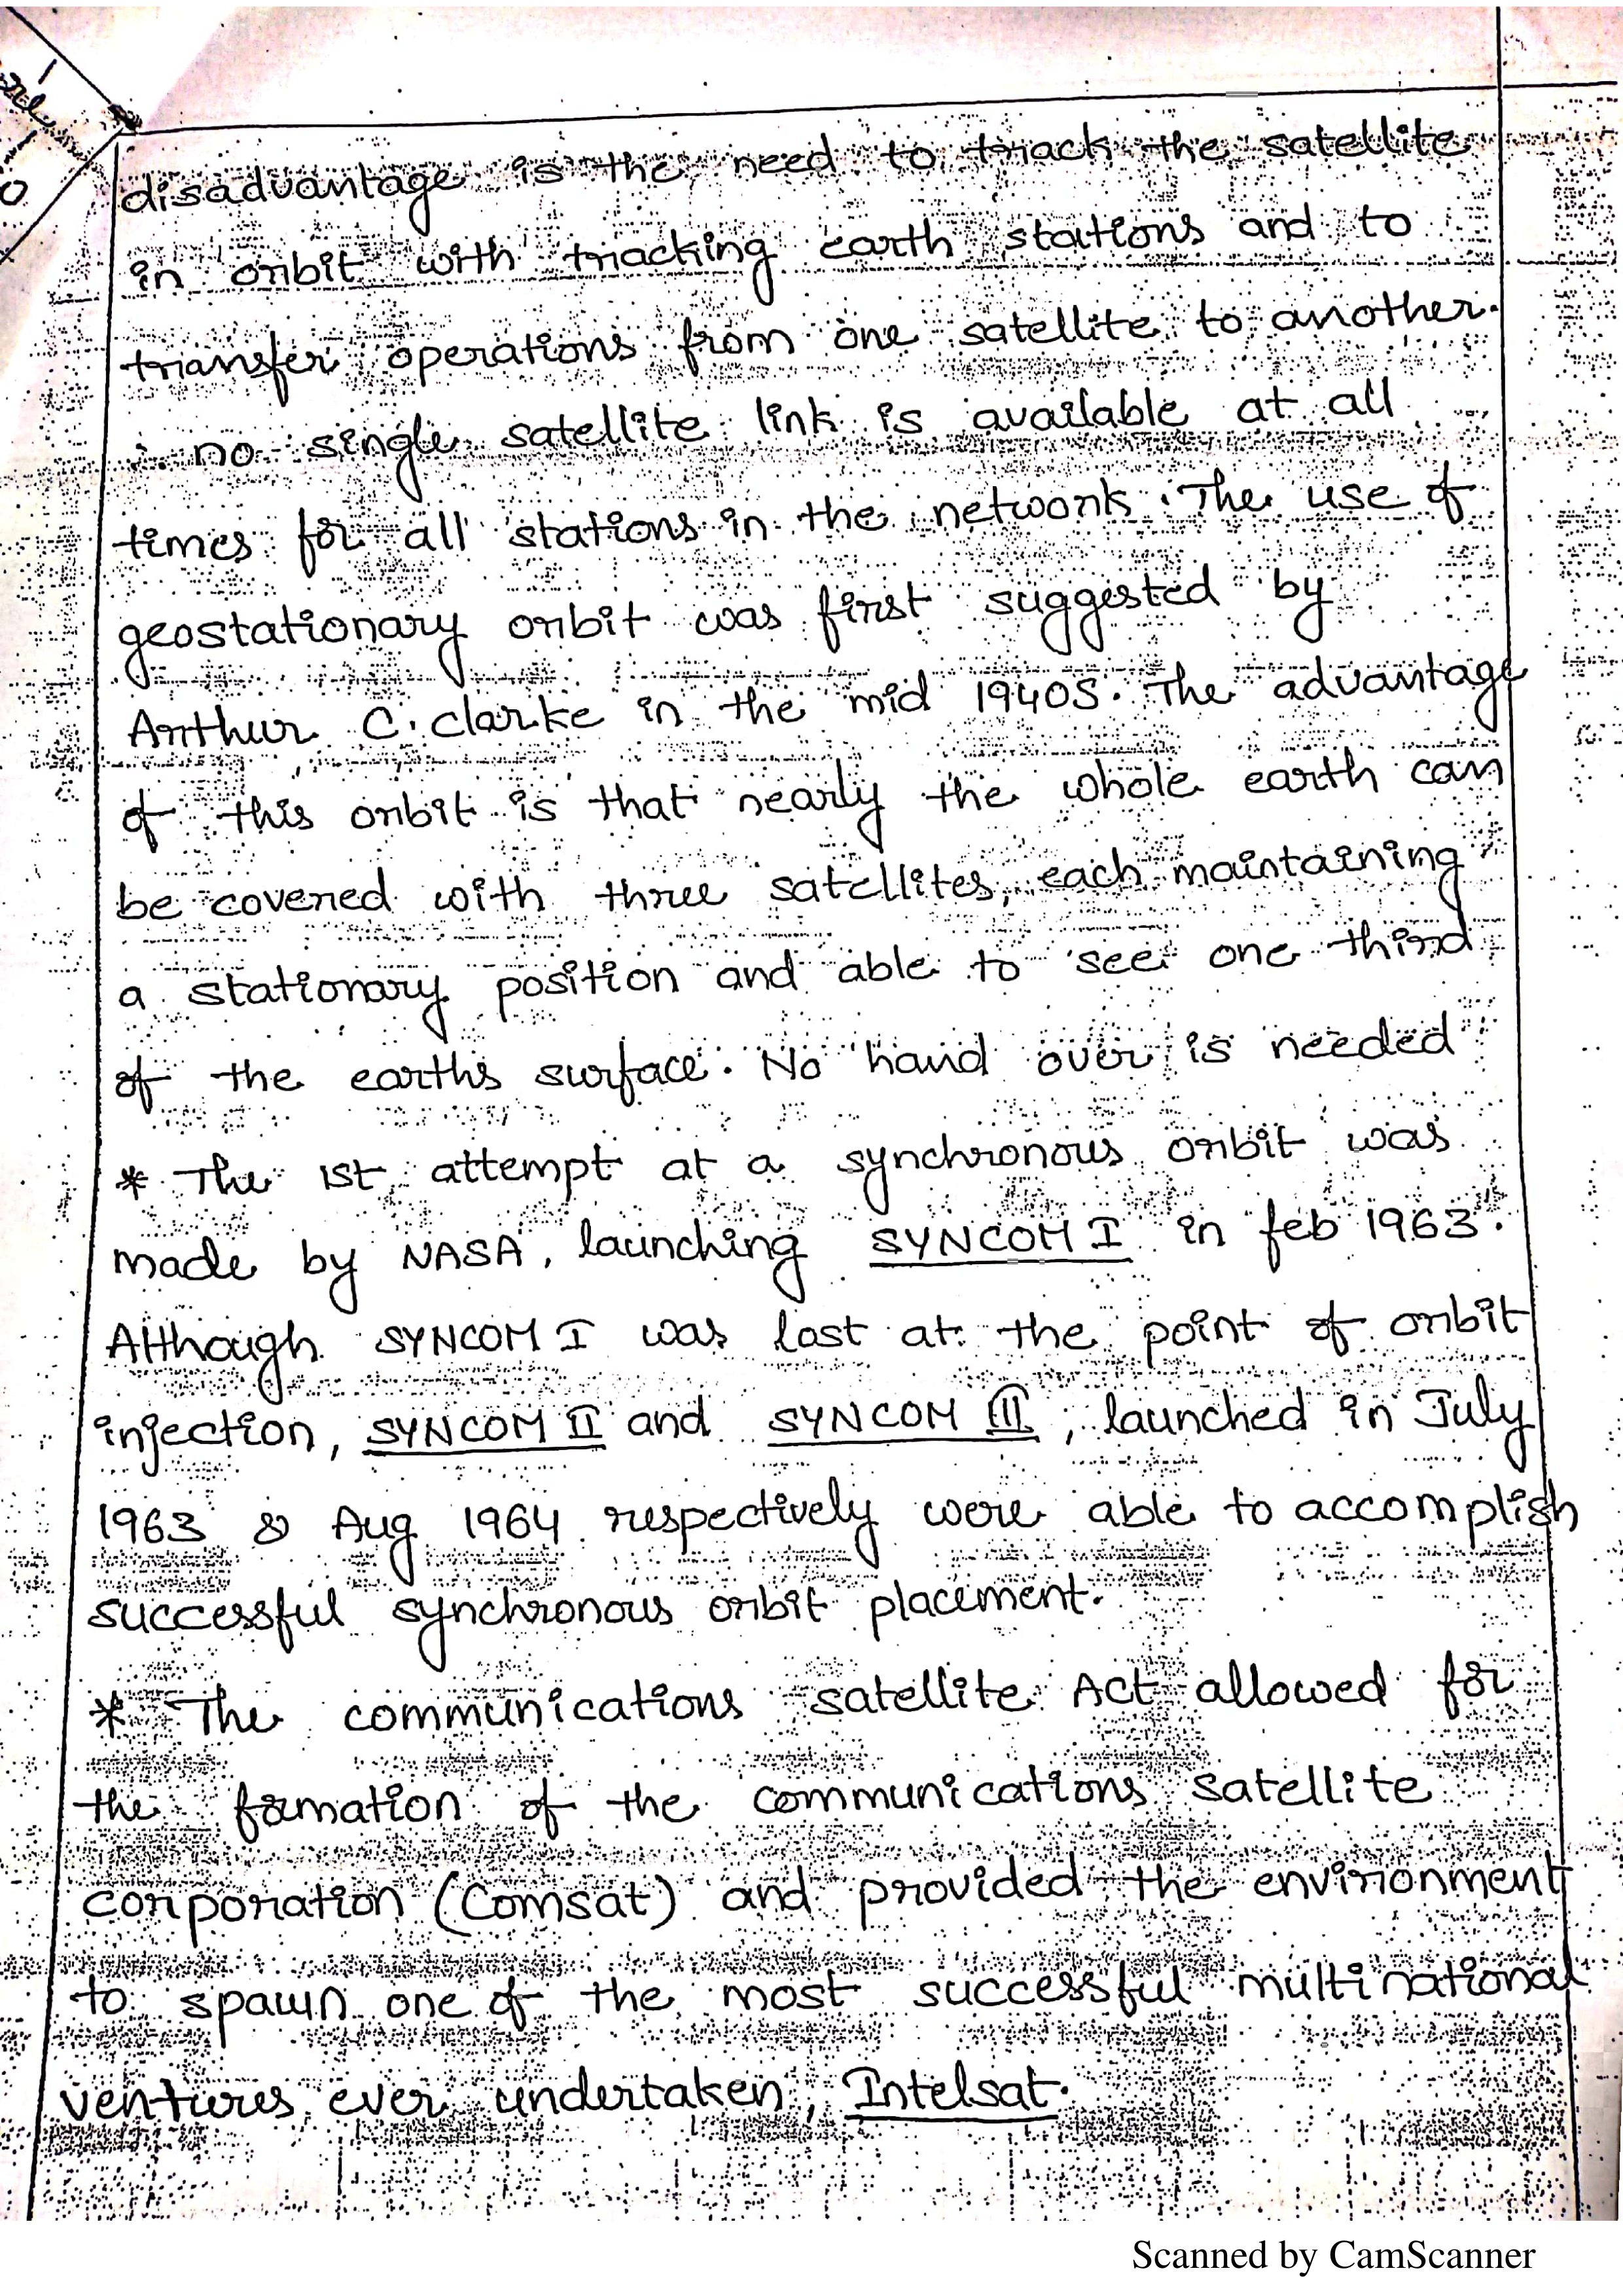 disadvantage is the need to track the satellite
in orbit with tracking earth stations and to
transfer operations from one satellite to another.
∴ no single satellite link is available at all
times for all stations in the network. The use of
geostationary orbit was first suggested by
Arthur C. Clarke in the mid 1940s. The advantage
of this orbit is that nearly the whole earth can
be covered with three satellites, each maintaining
a stationary position and able to see one third
of the earths surface. No hand over is needed
* The 1st attempt at a synchronous orbit was
made by NASA, launching SYNCOM I in feb 1963.
Although SYNCOM I was lost at the point of orbit
injection, SYNCOM II and SYNCOM III, launched in July
1963 & Aug 1964 respectively were able to accomplish
successful synchronous orbit placement.
* The communications satellite Act allowed for
the formation of the communications satellite
corporation (Comsat) and provided the environment
to spawn one of the most successful multinational
ventures ever undertaken, Intelsat.
Scanned by CamScanner